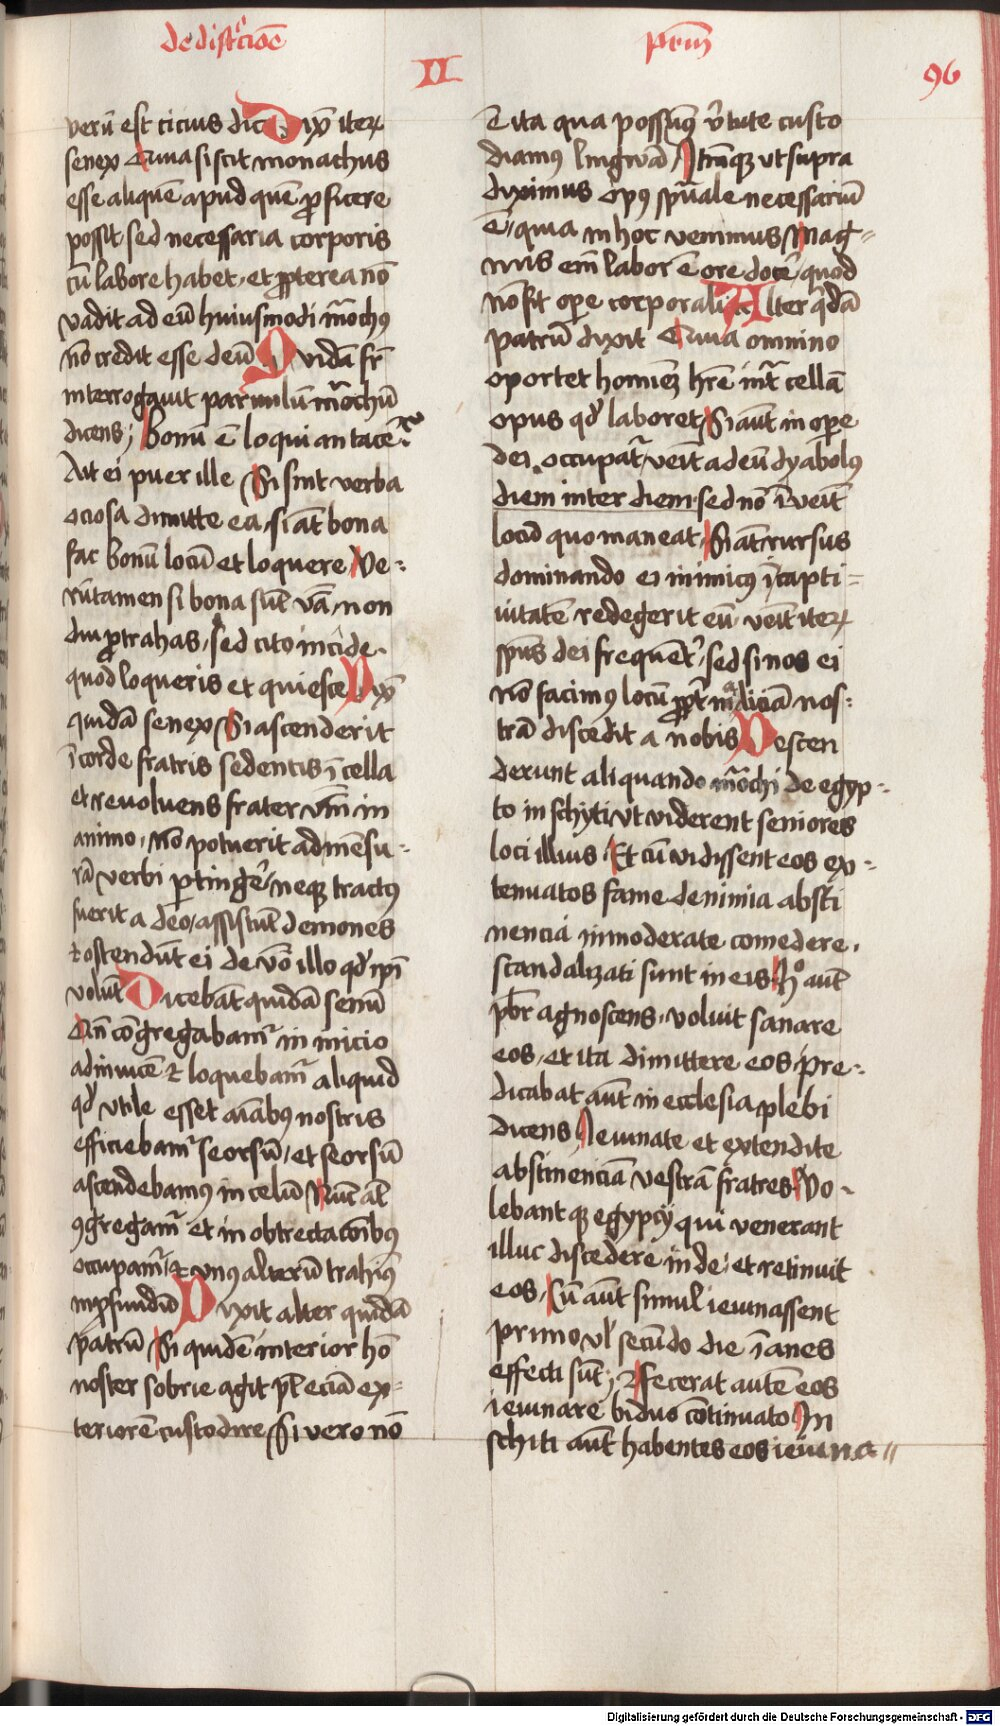 de discrecione
prim
II
96
verū est cicius dic Dixͭ iteꝝ
senex Quia si scit monachus
esse aliquē apud quē ꝓficere
possit sed necessaria corporis
cū labore habet et ꝓpterea nō
vadit ad eū huiusmodi mōchus
nō credit esse deū Quidā fr̄
interrogauit paruulū mōchū
dicens Bonū ē loqui an tacē
Ait ei puer ille Si sint verba
ociosa dimitte ea si aūt bona
fac bonū locū et loquere Ve-
rūtamen si bona sūt vā non
diu ꝓtrahas sed cito incide
quod loqueris et quiesce Dixͭ
quidā senex Si ascenderit
ī corde fratris sedentis ī cella
et reuoluens frater vm̄ in
animo nō potuerit ad mēsu-
rā verbi ꝑtingē neqꝫ tractꝰ
fuerit a deo assistūt demones
⁊ ostendūt ei de vō illo qd̄ ipī
volūt Dicebāt quidā senū
Qn̄ cōgregabamᷣ in inicio
adinuicē ⁊ loquebamᷣ aliquid
qd̄ vtile esset aīabꝰ nostris
efficiebamᷣ seorsū et seorsū
ascendebamꝰ in celū Nūc aūt
ꝯgregamᷣ et in obtrectacōibꝰ
occupamᷣ ⁊ vnꝰ alterū trahimꝰ
in ꝓfundū Dixit alter quidā
patrū Si quidē interior hō
noster sobrie agit pt̄ eciā ex-
teriorē custodire Si vero nō
ē ita qua possumꝰ v̄tute custo
diamꝰ lingwā Itaqꝫ vt supra
diximus opꝰ spūale necessariū
ē quia in hoc venimus Mag-
nus em̄ labor ē ore docē quod
nō fit oꝑe corporali Alter q̄dā
patrū dixit Quia omnino
oportet homīeꝫ hr̄e intᷓ cellā
opus qd̄ laboret Si aūt in oꝑe
dei occupatᷣ veīt ad eū dyabolꝰ
diem inter diem sed nō īveīt
locū quo maneat Si aūt rursus
dominando ei inimicꝰ ī capti-
uitatē redegerit eū veīt iteꝝ
spūs dei frequēt sed si nos ei
nō facimꝰ locū ꝓpt̄ maliciā nos-
trā discedit a nobis Descen
derunt aliquando mōchi de egyp-
to in schyti vt viderent seniores
loci illius Et cū vidissent eos ex-
tenuatos fame de nimia absti
nencia inmoderate comedere
scandalizati sunt in eis Hͦ aūt
pb̄r agnoscens voluit sanare
eos et ita dimittere eos pre-
dicabat aūt in ecclesia plebi
dicens Ieiunate et extendite
abstinenciā vestrā fratres Vo-
lebant qꝫ egypcij qui venerant
illuc discedere inde et retinuit
eos Cū aūt simul ieiunassent
primo vl̓ secūdo die īanes
effecti sūt ⁊ fecerat autē eos
ieiunare biduo cōtinuato In
schiti aūt habentes eos ieiuna-
Digitalisierung gefördert durch die Deutsche Forschungsgemeinschaft - DFG